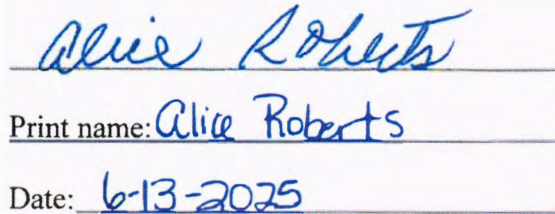 Alice Roberts
Print name: Alice Roberts
Date: 6-13-2025